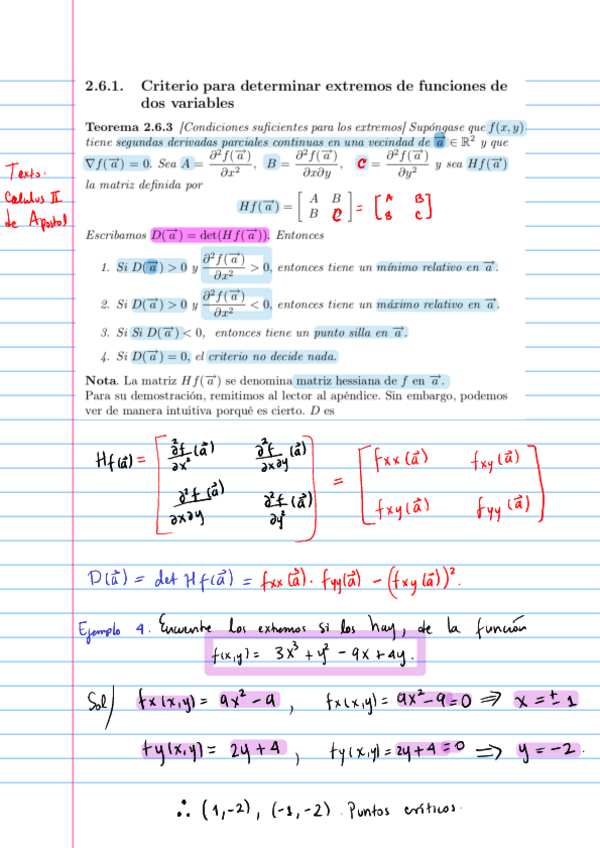 2.6.1. Criterio para determinar extremos de funciones de
dos variables
Teorema 2.6.3 [Condiciones suficientes para los extremos] Supóngase que f(x,y)
tiene segundas derivadas parciales continuas en una vecindad de a⃗ ∈ ℝ² y que
∇f(a⃗) = 0. Sea A = ∂²f(a⃗)/∂x², B = ∂²f(a⃗)/∂x∂y, C = ∂²f(a⃗)/∂y² y sea Hf(a⃗)
la matriz definida por
Texto.
Calculus II
de Apostol
Hf(a⃗) = [A B; B C] = [A B; B C]
Escribamos D(a⃗) = det(Hf(a⃗)). Entonces
1. Si D(a⃗) > 0 y ∂²f(a⃗)/∂x² > 0, entonces tiene un mínimo relativo en a⃗.
2. Si D(a⃗) > 0 y ∂²f(a⃗)/∂x² < 0, entonces tiene un máximo relativo en a⃗.
3. Si Si D(a⃗) < 0, entonces tiene un punto silla en a⃗.
4. Si D(a⃗) = 0, el criterio no decide nada.
Nota. La matriz Hf(a⃗) se denomina matriz hessiana de f en a⃗.
Para su demostración, remitimos al lector al apéndice. Sin embargo, podemos
ver de manera intuitiva porqué es cierto. D es
Hf(a⃗) = [∂²f(a⃗)/∂x² ∂²f(a⃗)/∂x∂y; ∂²f(a⃗)/∂x∂y ∂²f(a⃗)/∂y²] = [fxx(a⃗) fxy(a⃗); fxy(a⃗) fyy(a⃗)]
D(a⃗) = det Hf(a⃗) = fxx(a⃗) · fyy(a⃗) − (fxy(a⃗))².
Ejemplo 4. Encuentre los extremos si los hay, de la función
f(x,y) = 3x³ + y² − 9x + 4y.
Sol/ fx(x,y) = 9x² − 9, fx(x,y) = 9x² − 9 = 0 ⟹ x = ± 1
fy(x,y) = 2y + 4, fy(x,y) = 2y + 4 = 0 ⟹ y = −2.
∴ (1,−2), (−1,−2). Puntos críticos.